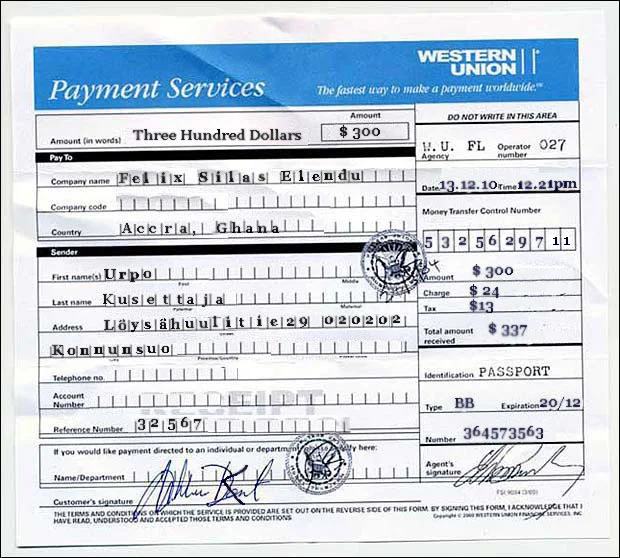 WESTERN UNION
Payment Services
The fastest way to make a payment worldwide.℠
Amount
DO NOT WRITE IN THIS AREA
Amount (in words) Three Hundred Dollars $ 300
W. U. FL Operator 027
Agency number
Pay To
Company name Felix Silas Elendu
Date 13.12.10 Time 12.21pm
Company code
Money Transfer Control Number
Country Accra, Ghana
5 3 2 5 6 2 9 7 11
Sender
First name(s) Urpo
First Middle
Amount $ 300
Last name Kusettaja
Paternal Maternal
Charge $ 24
Tax $13
Address Löysähuulitie29 020202
Total amount received $ 337
Konnunsuo
Telephone no.
Identification PASSPORT
Account Number
RECEIPT
Type BB Expiration 20/12
Reference Number 32567
Number 364573563
If you would like payment directed to an individual or department, please specify here:
Name/Department
Agent's signature
Customer's signature
THE TERMS AND CONDITIONS ON WHICH THE SERVICE IS PROVIDED ARE SET OUT ON THE REVERSE SIDE OF THIS FORM. BY SIGNING THIS FORM, I ACKNOWLEDGE THAT I
HAVE READ, UNDERSTOOD AND ACCEPTED THOSE TERMS AND CONDITIONS
Copyright © 2000 WESTERN UNION FINANCIAL SERVICES, INC